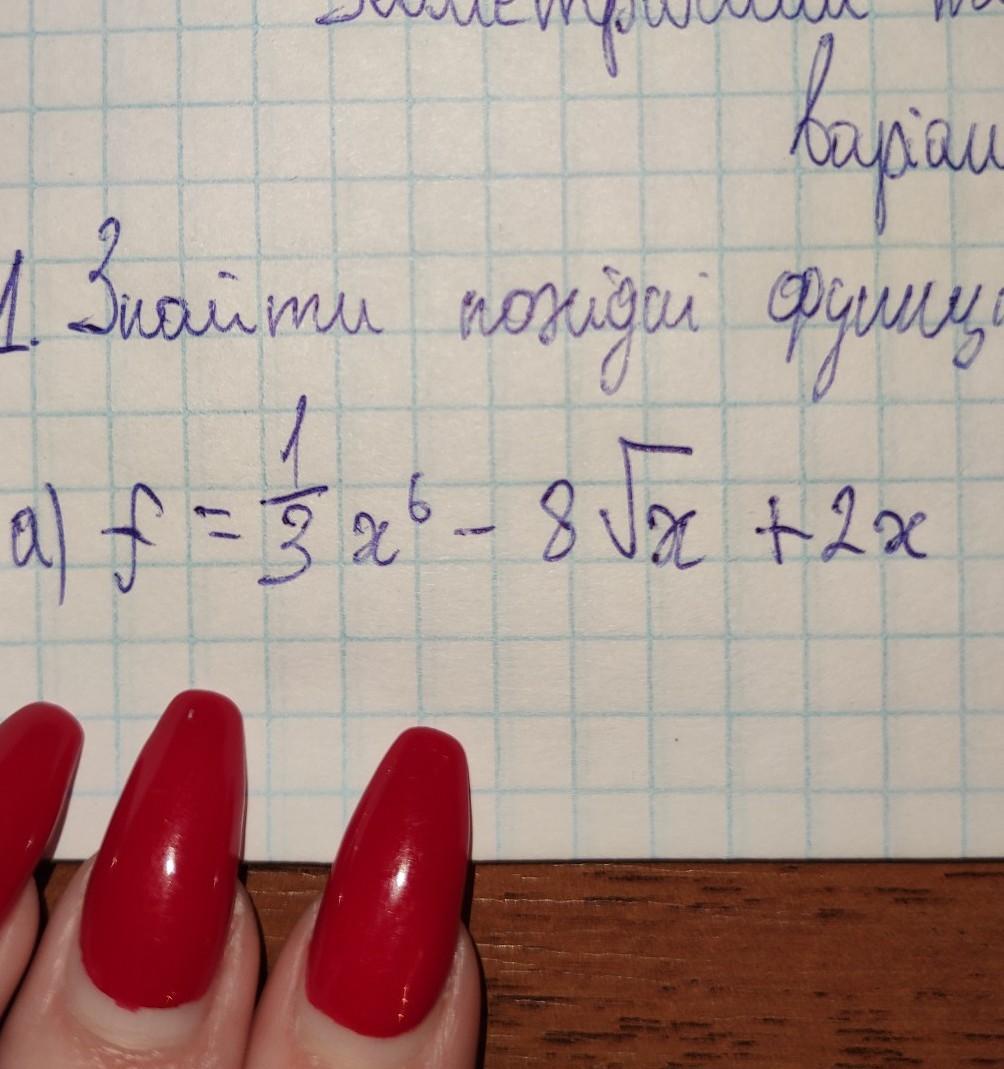 варіан
1. Знайти похідні функці
а) f = 1/3 x⁶ - 8√x + 2x